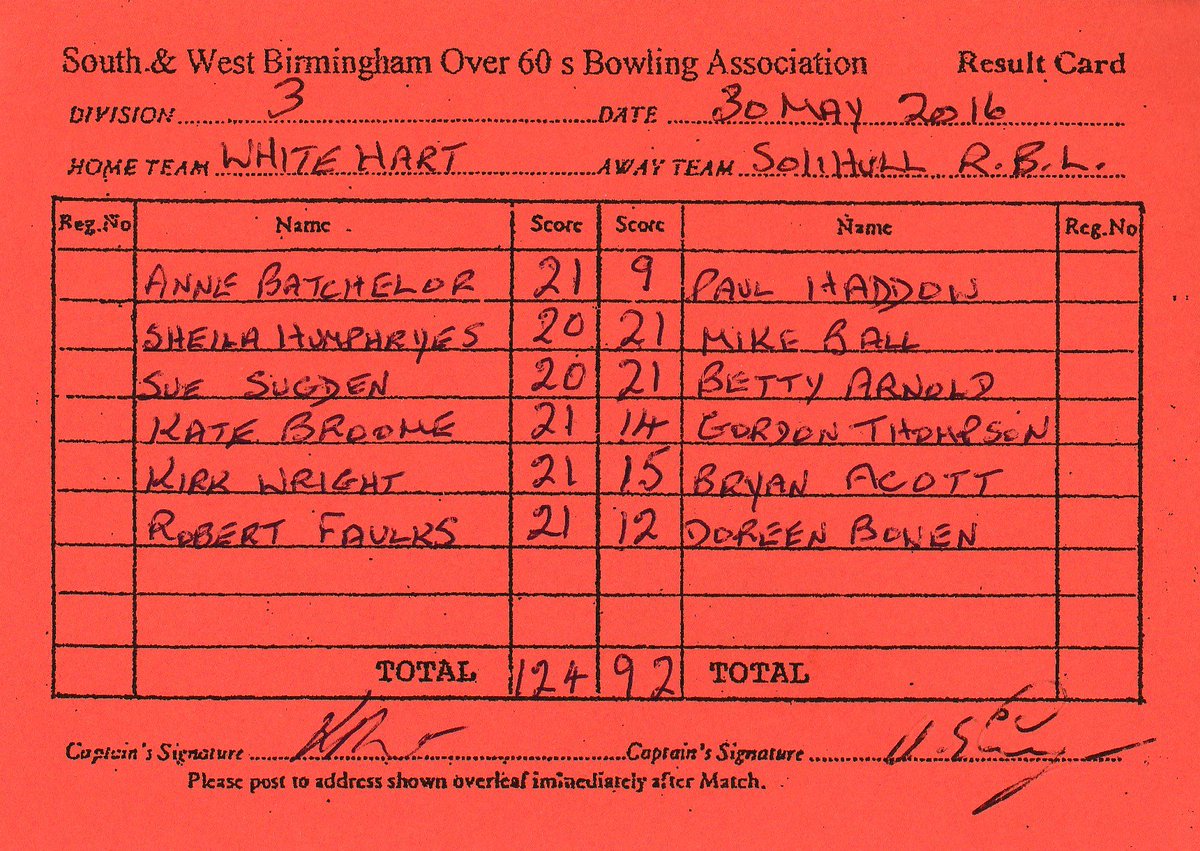 South & West Birmingham Over 60 s Bowling Association Result Card
DIVISION 3 DATE 30 MAY 2016
HOME TEAM WHITE HART AWAY TEAM SOLIHULL R.B.L.
Reg.No Name Score Score Name Reg.No
ANNE BATCHELOR 21 9 PAUL HADDON
SHEILA HUMPHRYES 20 21 MIKE BALL
SUE SUGDEN 20 21 BETTY ARNOLD
KATE BROOME 21 14 GORDON THOMPSON
KIRK WRIGHT 21 15 BRYAN ACOTT
ROBERT FAULKS 21 12 DOREEN BOWEN
TOTAL 124 92 TOTAL
Captain's Signature Captain's Signature
Please post to address shown overleaf immediately after Match.